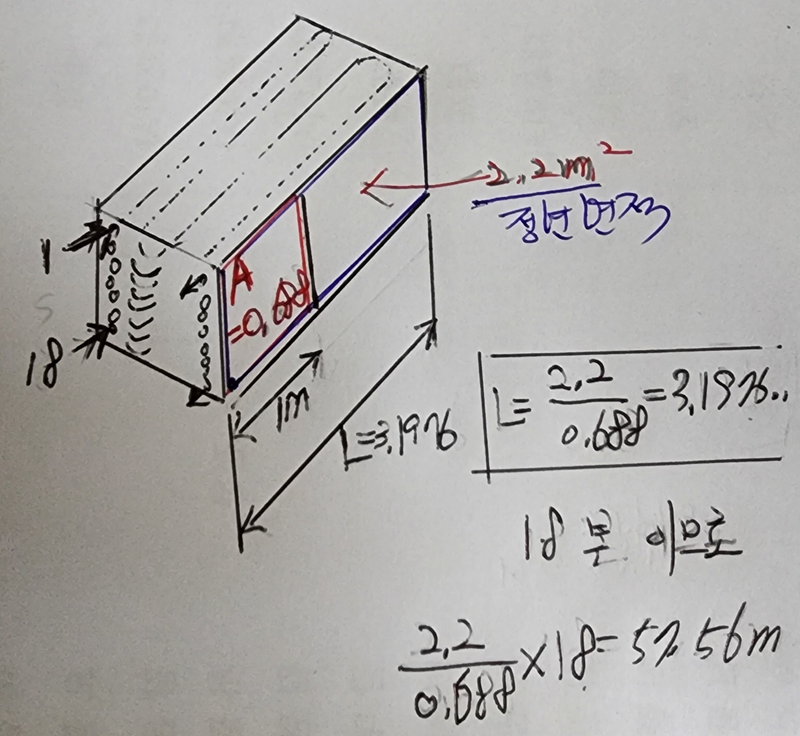 2.2m²
정면면적
1
A
=0.688
18
1m
L=3.1976
L= 2.2/0.688 = 3.1976..
18본 이므로
2.2/0.688 × 18 = 57.56m